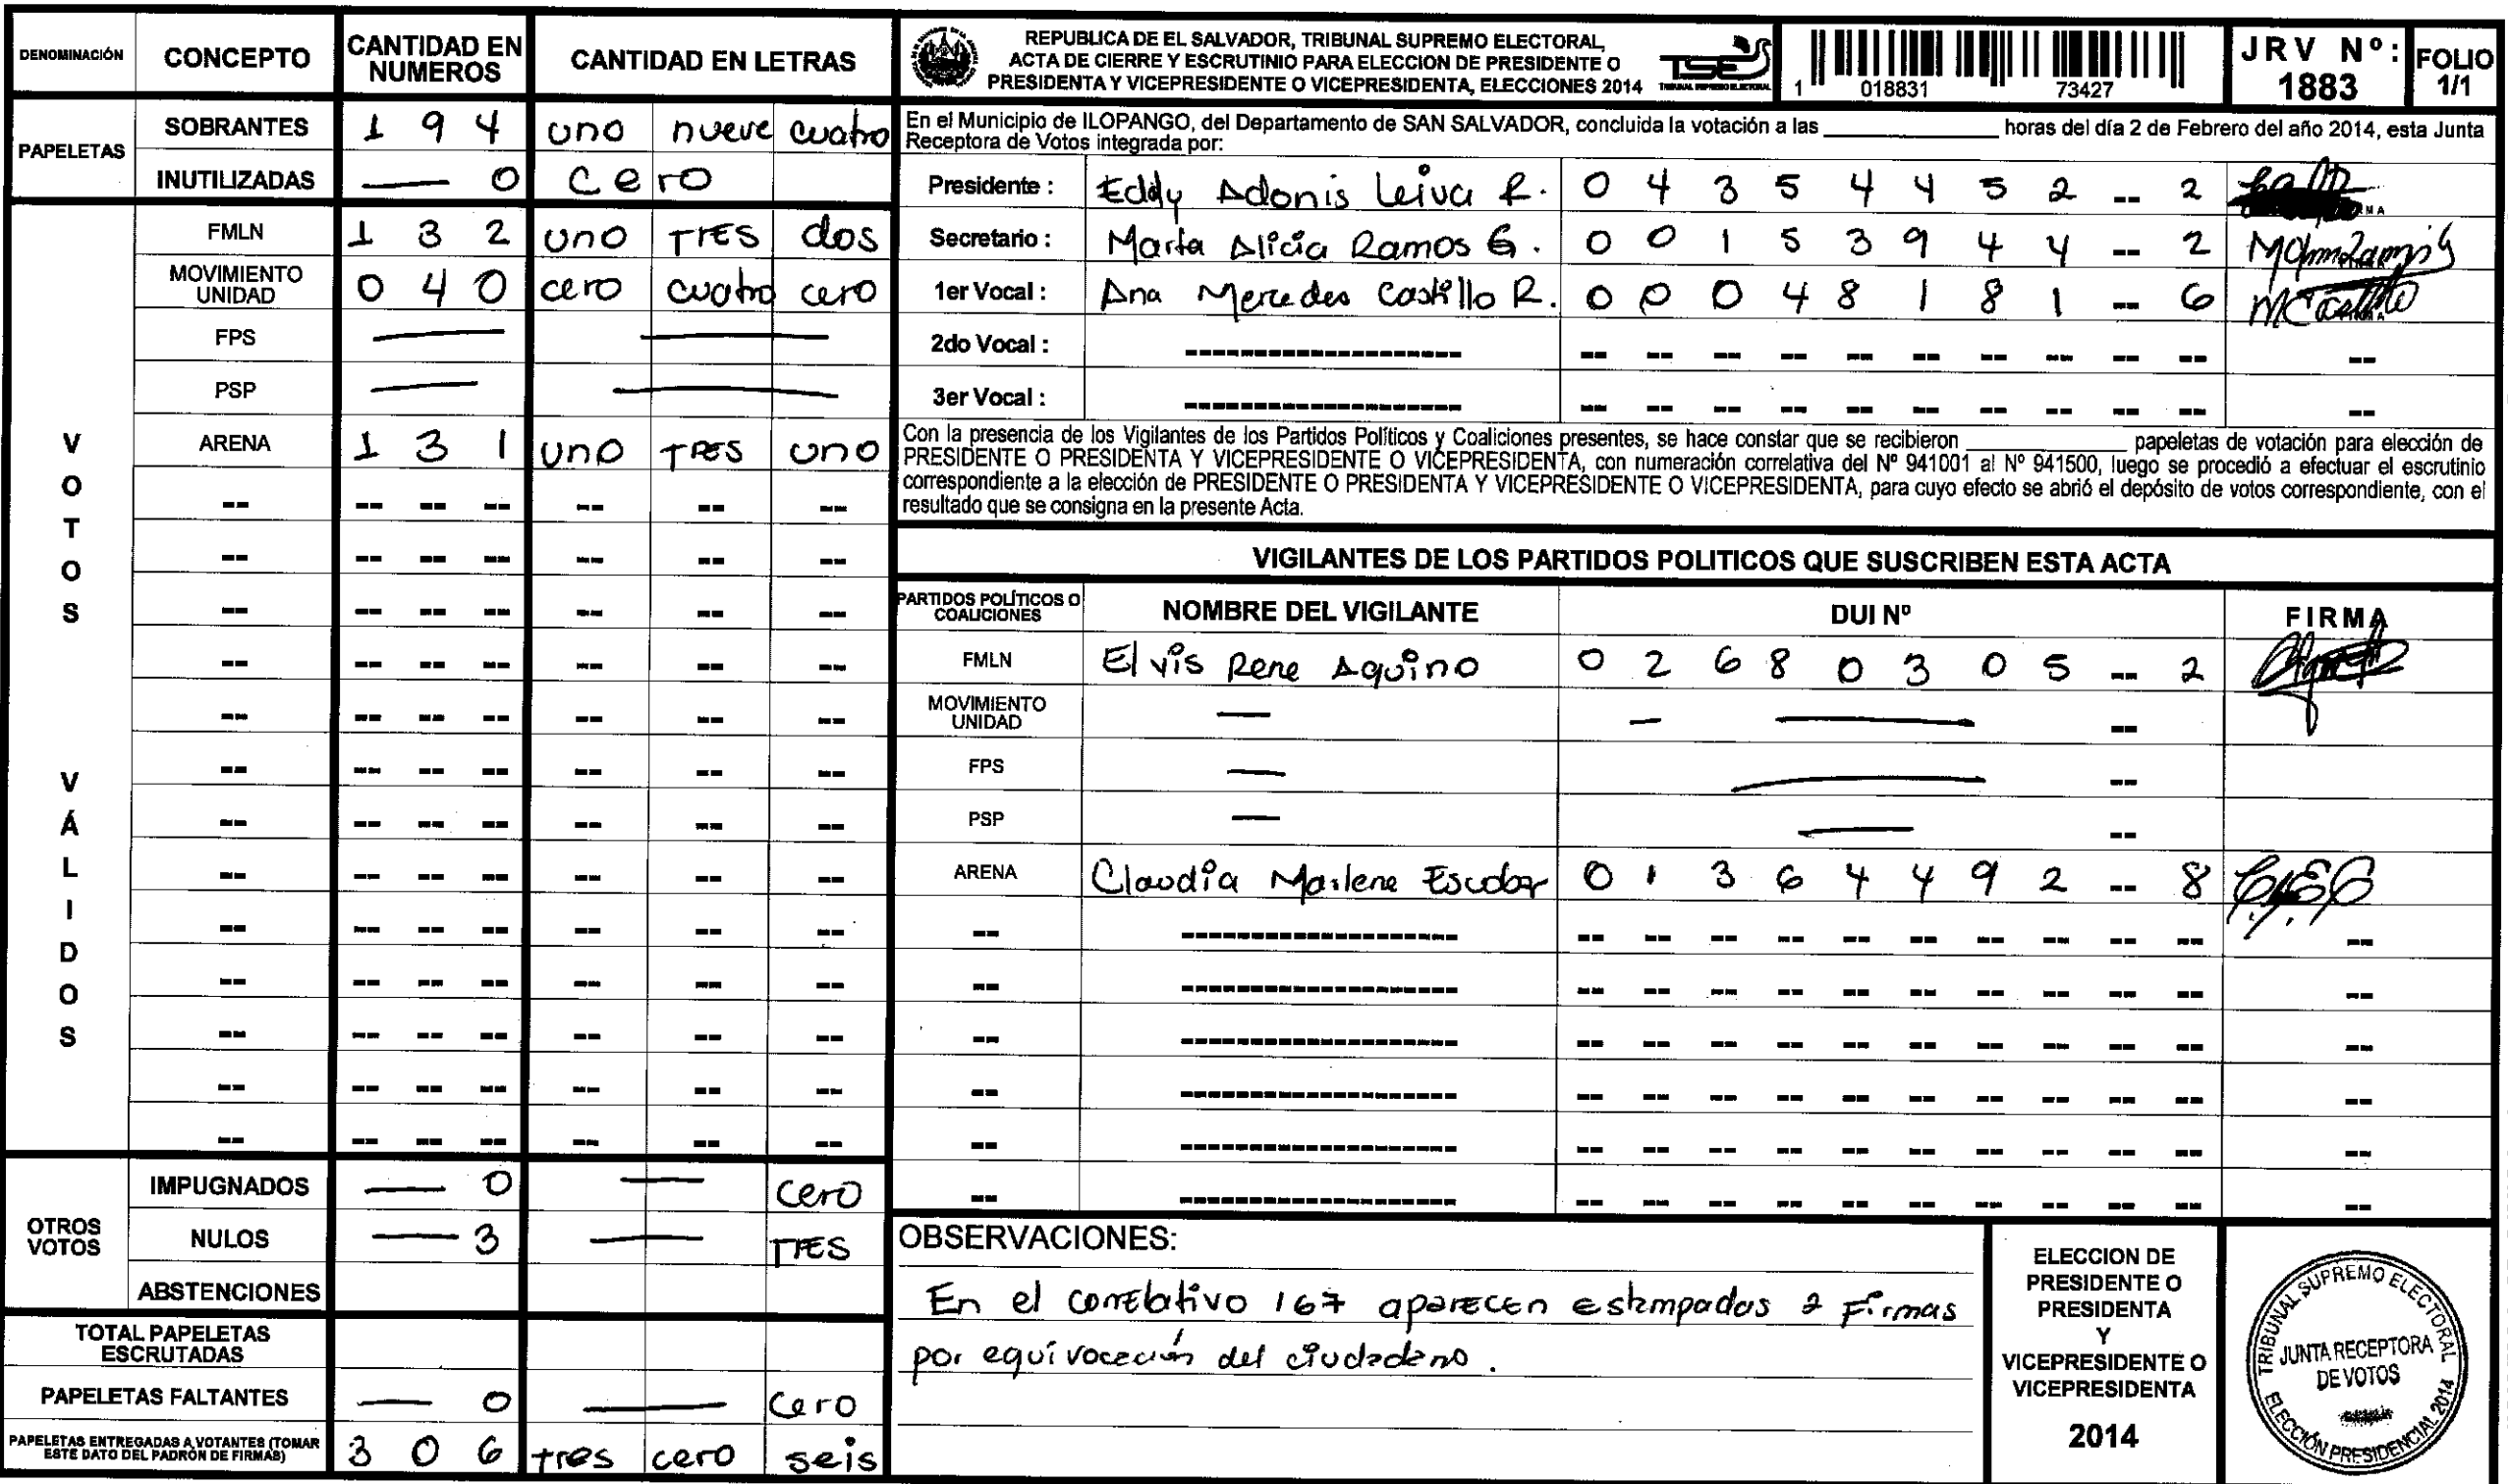 DENOMINACIÓN CONCEPTO CANTIDAD EN NUMEROS CANTIDAD EN LETRAS
PAPELETAS
SOBRANTES 1 9 4 uno nueve cuatro
INUTILIZADAS — 0 cero
VOTOS VÁLIDOS
FMLN 1 3 2 uno TRES dos
MOVIMIENTO UNIDAD 0 4 0 cero cuatro cero
FPS — —
PSP — —
ARENA 1 3 1 uno TRES uno
OTROS VOTOS
IMPUGNADOS — 0 — cero
NULOS — 3 — TRES
ABSTENCIONES
TOTAL PAPELETAS ESCRUTADAS
PAPELETAS FALTANTES — 0 — cero
PAPELETAS ENTREGADAS A VOTANTES (TOMAR ESTE DATO DEL PADRÓN DE FIRMAS) 3 0 6 tres cero seis
REPUBLICA DE EL SALVADOR, TRIBUNAL SUPREMO ELECTORAL,
ACTA DE CIERRE Y ESCRUTINIO PARA ELECCION DE PRESIDENTE O
PRESIDENTA Y VICEPRESIDENTE O VICEPRESIDENTA, ELECCIONES 2014
TSE
TRIBUNAL SUPREMO ELECTORAL
1 018831 73427
JRV Nº: 1883
FOLIO 1/1
En el Municipio de ILOPANGO, del Departamento de SAN SALVADOR, concluida la votación a las ____ horas del día 2 de Febrero del año 2014, esta Junta
Receptora de Votos integrada por:
Presidente : Eddy Adonis Leiva R. 0 4 3 5 4 4 5 2 -- 2
Secretario : Marta Alicia Ramos G. 0 0 1 5 3 9 4 4 -- 2
1er Vocal : Ana Mercedes Castillo R. 0 0 0 4 8 1 8 1 -- 6
2do Vocal :
3er Vocal :
Con la presencia de los Vigilantes de los Partidos Políticos y Coaliciones presentes, se hace constar que se recibieron ____ papeletas de votación para elección de
PRESIDENTE O PRESIDENTA Y VICEPRESIDENTE O VICEPRESIDENTA, con numeración correlativa del Nº 941001 al Nº 941500, luego se procedió a efectuar el escrutinio
correspondiente a la elección de PRESIDENTE O PRESIDENTA Y VICEPRESIDENTE O VICEPRESIDENTA, para cuyo efecto se abrió el depósito de votos correspondiente, con el
resultado que se consigna en la presente Acta.
VIGILANTES DE LOS PARTIDOS POLITICOS QUE SUSCRIBEN ESTA ACTA
PARTIDOS POLÍTICOS O COALICIONES NOMBRE DEL VIGILANTE DUI Nº FIRMA
FMLN Elvis Rene Aquino 0 2 6 8 0 3 0 5 -- 2
MOVIMIENTO UNIDAD — — —
FPS — —
PSP — —
ARENA Claudia Marlene Escobar 0 1 3 6 4 4 9 2 -- 8
OBSERVACIONES:
En el correlativo 167 aparecen estampadas 2 Firmas
por equivocación del ciudadano.
ELECCION DE
PRESIDENTE O
PRESIDENTA
Y
VICEPRESIDENTE O
VICEPRESIDENTA
2014
TRIBUNAL SUPREMO ELECTORAL
JUNTA RECEPTORA
DE VOTOS
ELECCIÓN PRESIDENCIAL 2014